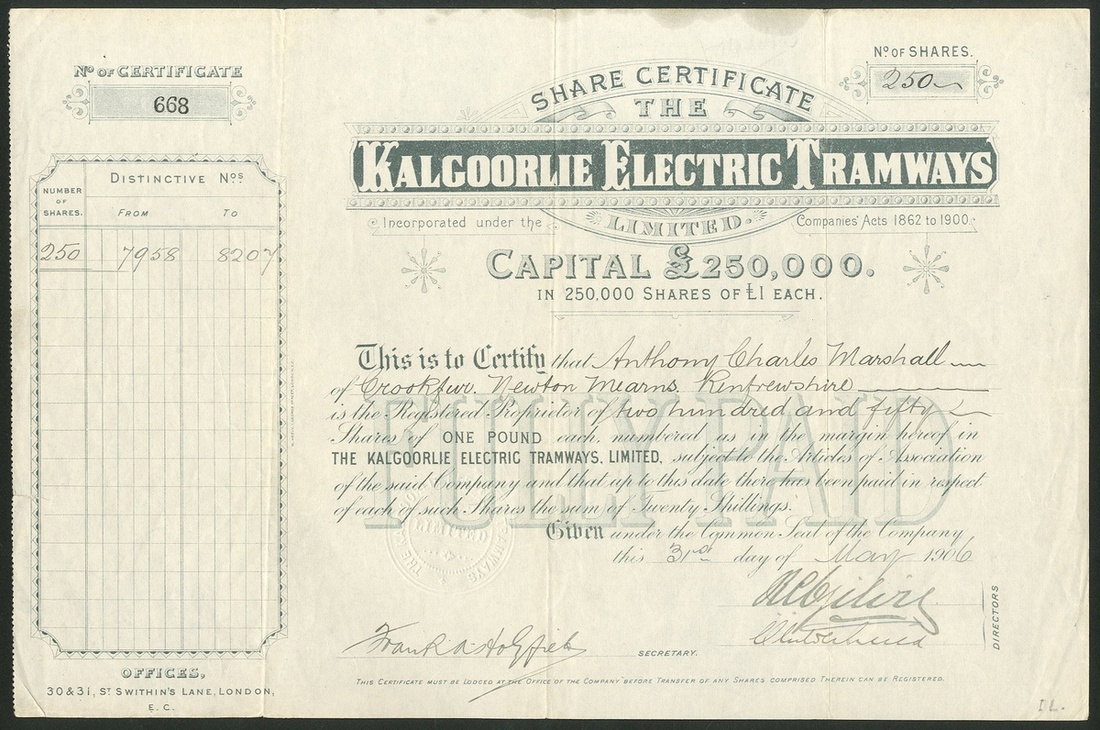 Nº OF CERTIFICATE
668
Nº OF SHARES.
250
SHARE CERTIFICATE
THE
KALGOORLIE ELECTRIC TRAMWAYS
LIMITED.
Incorporated under the Companies' Acts 1862 to 1900.
CAPITAL £250,000.
IN 250,000 SHARES OF £1 EACH.
DISTINCTIVE Nos
NUMBER OF SHARES.
FROM TO
250 7958 8207
This is to Certify that Anthony Charles Marshall
of Crookfur, Newton Mearns, Renfrewshire
is the Registered Proprietor of two hundred and fifty
Shares of ONE POUND each, numbered as in the margin hereof in
THE KALGOORLIE ELECTRIC TRAMWAYS, LIMITED, subject to the Articles of Association
of the said Company and that up to this date there has been paid in respect
of each of such Shares the sum of Twenty Shillings.
FULLY PAID
Given under the Common Seal of the Company
this 31st day of May 1906
DIRECTORS
SECRETARY.
THIS CERTIFICATE MUST BE LODGED AT THE OFFICE OF THE COMPANY BEFORE TRANSFER OF ANY SHARES COMPRISED THEREIN CAN BE REGISTERED.
OFFICES,
30 & 31, ST SWITHIN'S LANE, LONDON,
E. C.
LIMITED
I L.